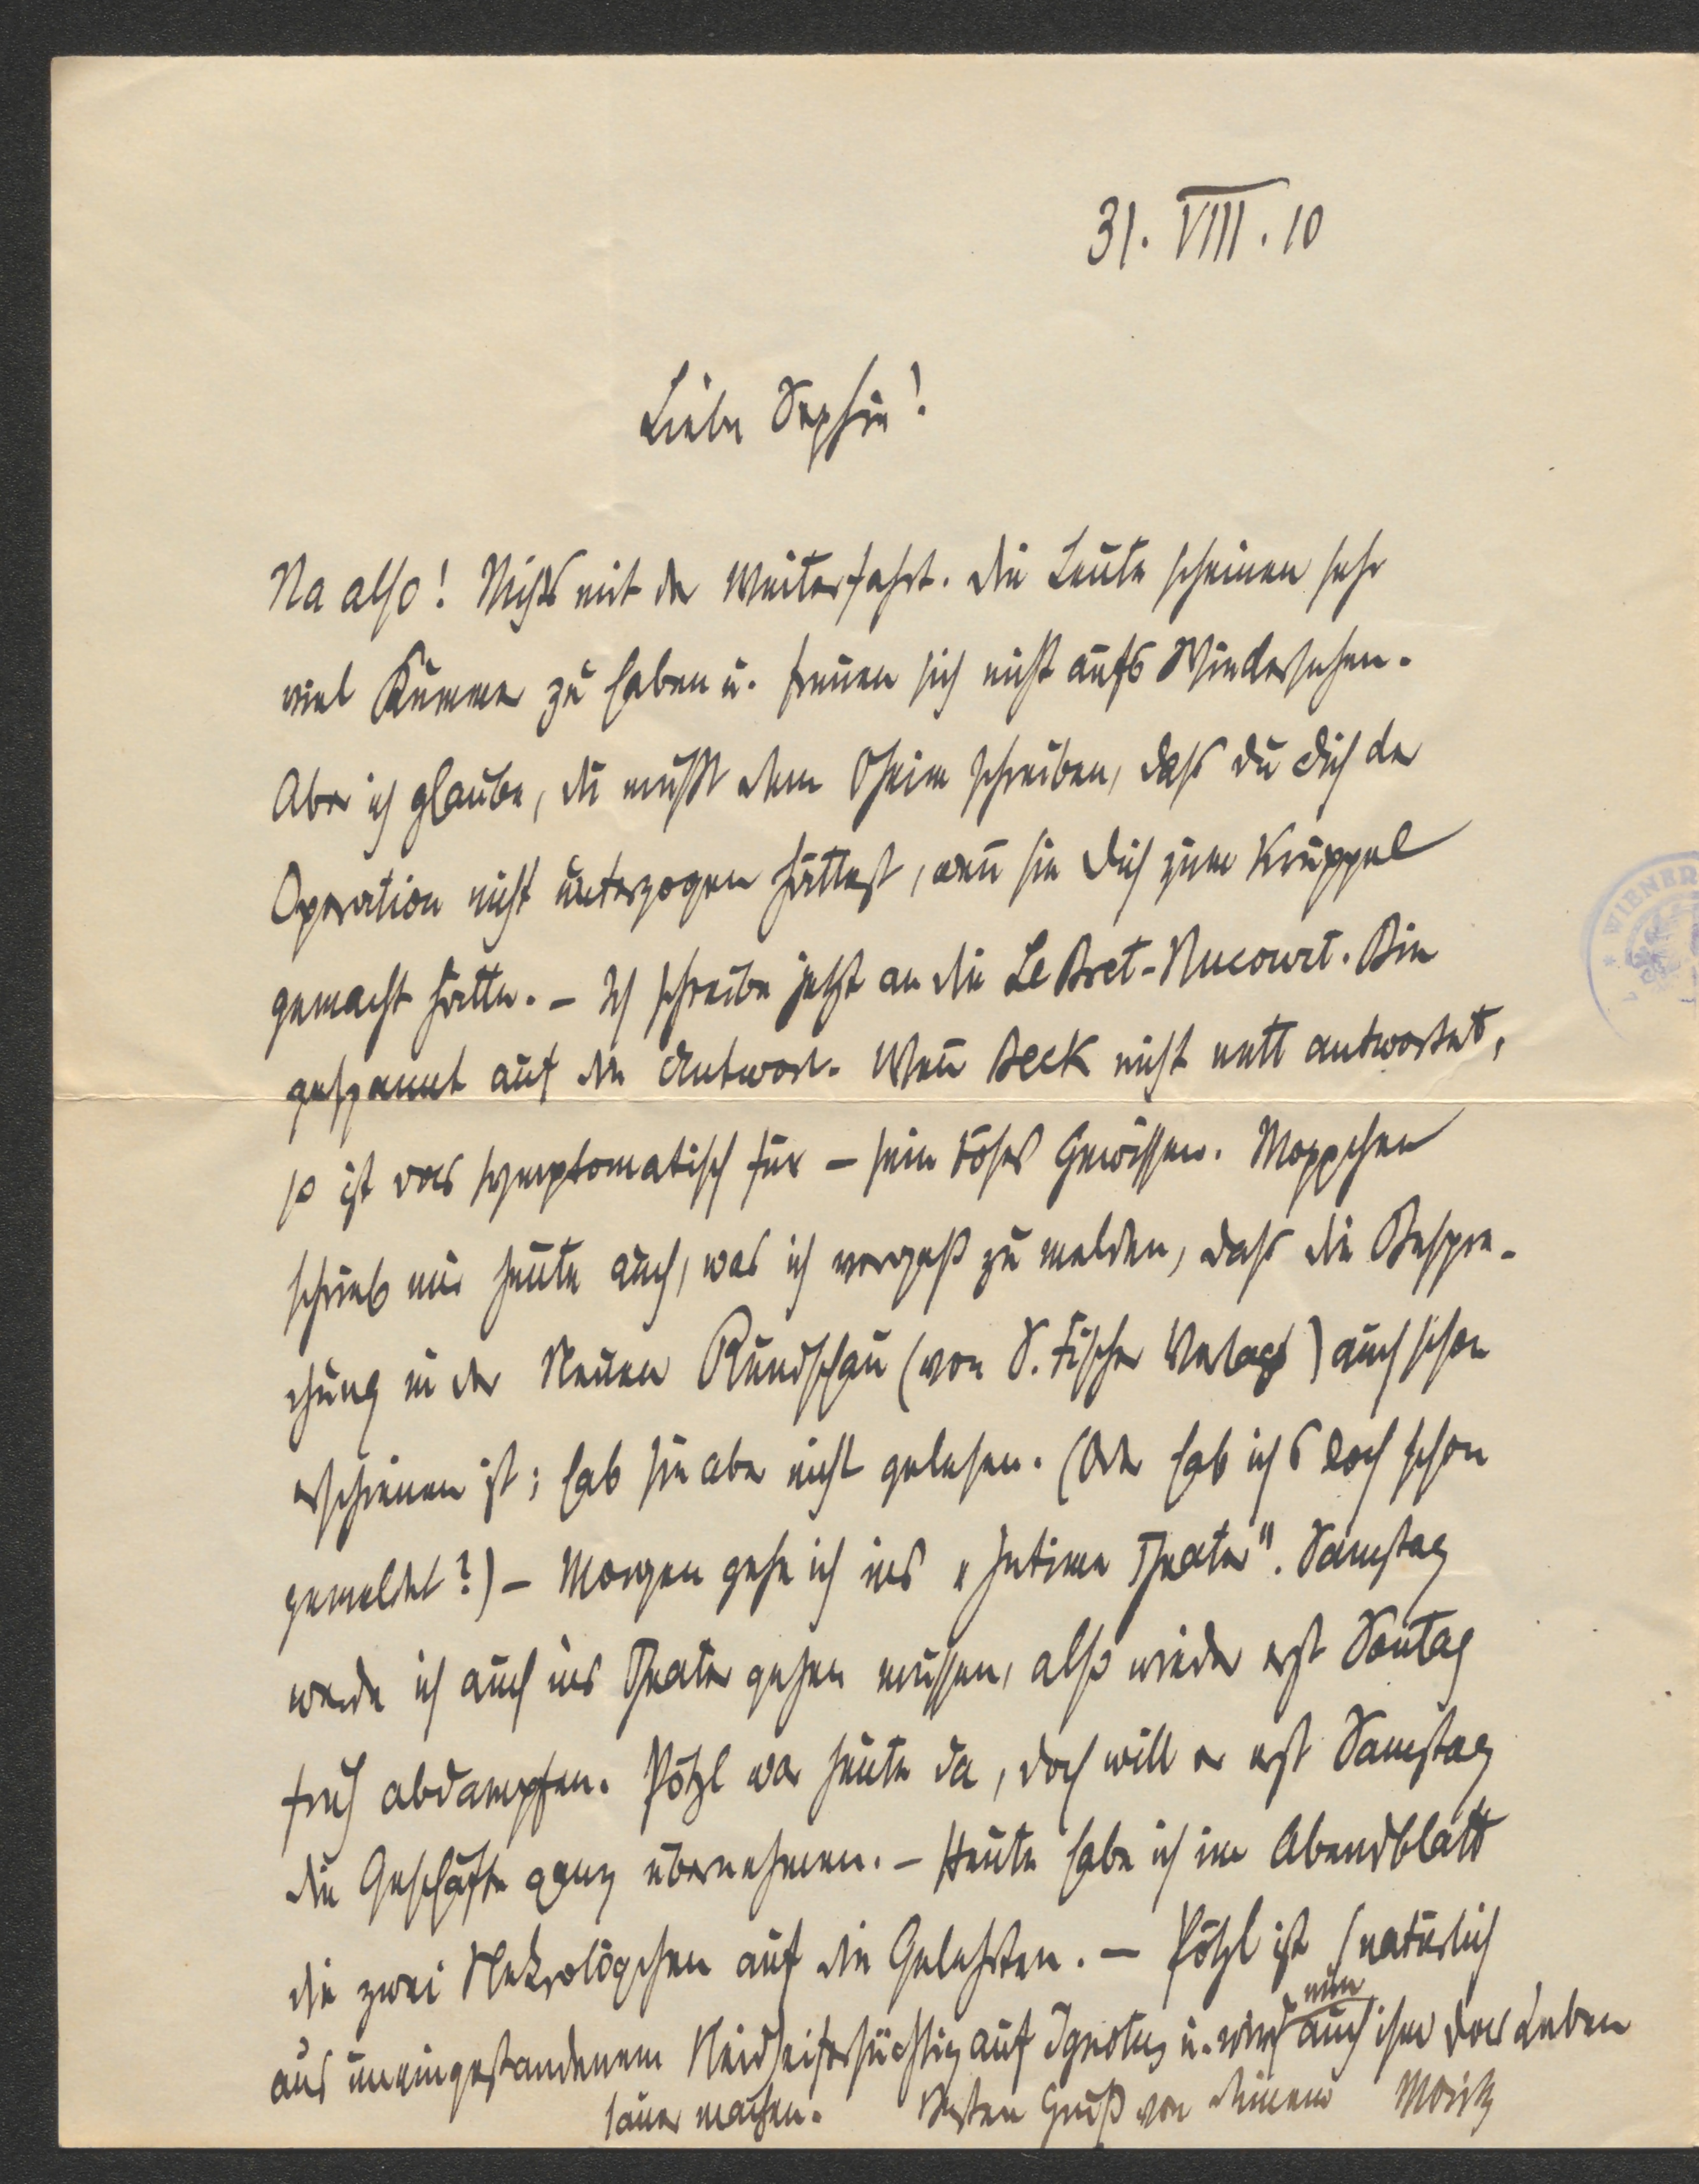 31. VIII. 10
Liebe Sophie!
Na also! Nichts mit der Weiterfahrt. Die Leute scheinen sehr
viel Kummer zu haben u. freuen sich nicht aufs Wiedersehen.
Aber ich glaube, du mußt dem Oheim schreiben, dass du dich der
Operation nicht unterzogen hättest, wenn sie dich zum Krüppel
gemacht hätte. – Ich schreibe jetzt an die Le Bret-Nucourt. Bin
gespannt auf die Antwort. Wenn Beck nicht nett antwortet,
so ist das symptomatisch für – sein böses Gewissen. Moppchen
schrieb mir heute auch, was ich vergaß zu melden, dass die Bespre-
chung in der Neuen Rundschau (von S. Fischer Verlag) auch schon
erschienen ist; hab sie aber nicht gelesen. (Oder hab ich's doch schon
gemeldet?) – Morgen gehe ich ins „Intime Theater". Samstag
werde ich auch ins Theater gehen müssen, also wieder erst Sontag
früh abdampfen. Pötzl war heute da, doch will er erst Samstag
die Geschäfte ganz übernehmen. – Heute habe ich im Abendblatt
die zwei Nekrologchen auf die Gelehrten. – Pötzl ist (natürlich
aus uneingestandenem Neid) eifersüchtig auf Ignotus u. wird nun auch ihm das Leben
sauer machen. Besten Gruß von deinem Moritz
WIENER